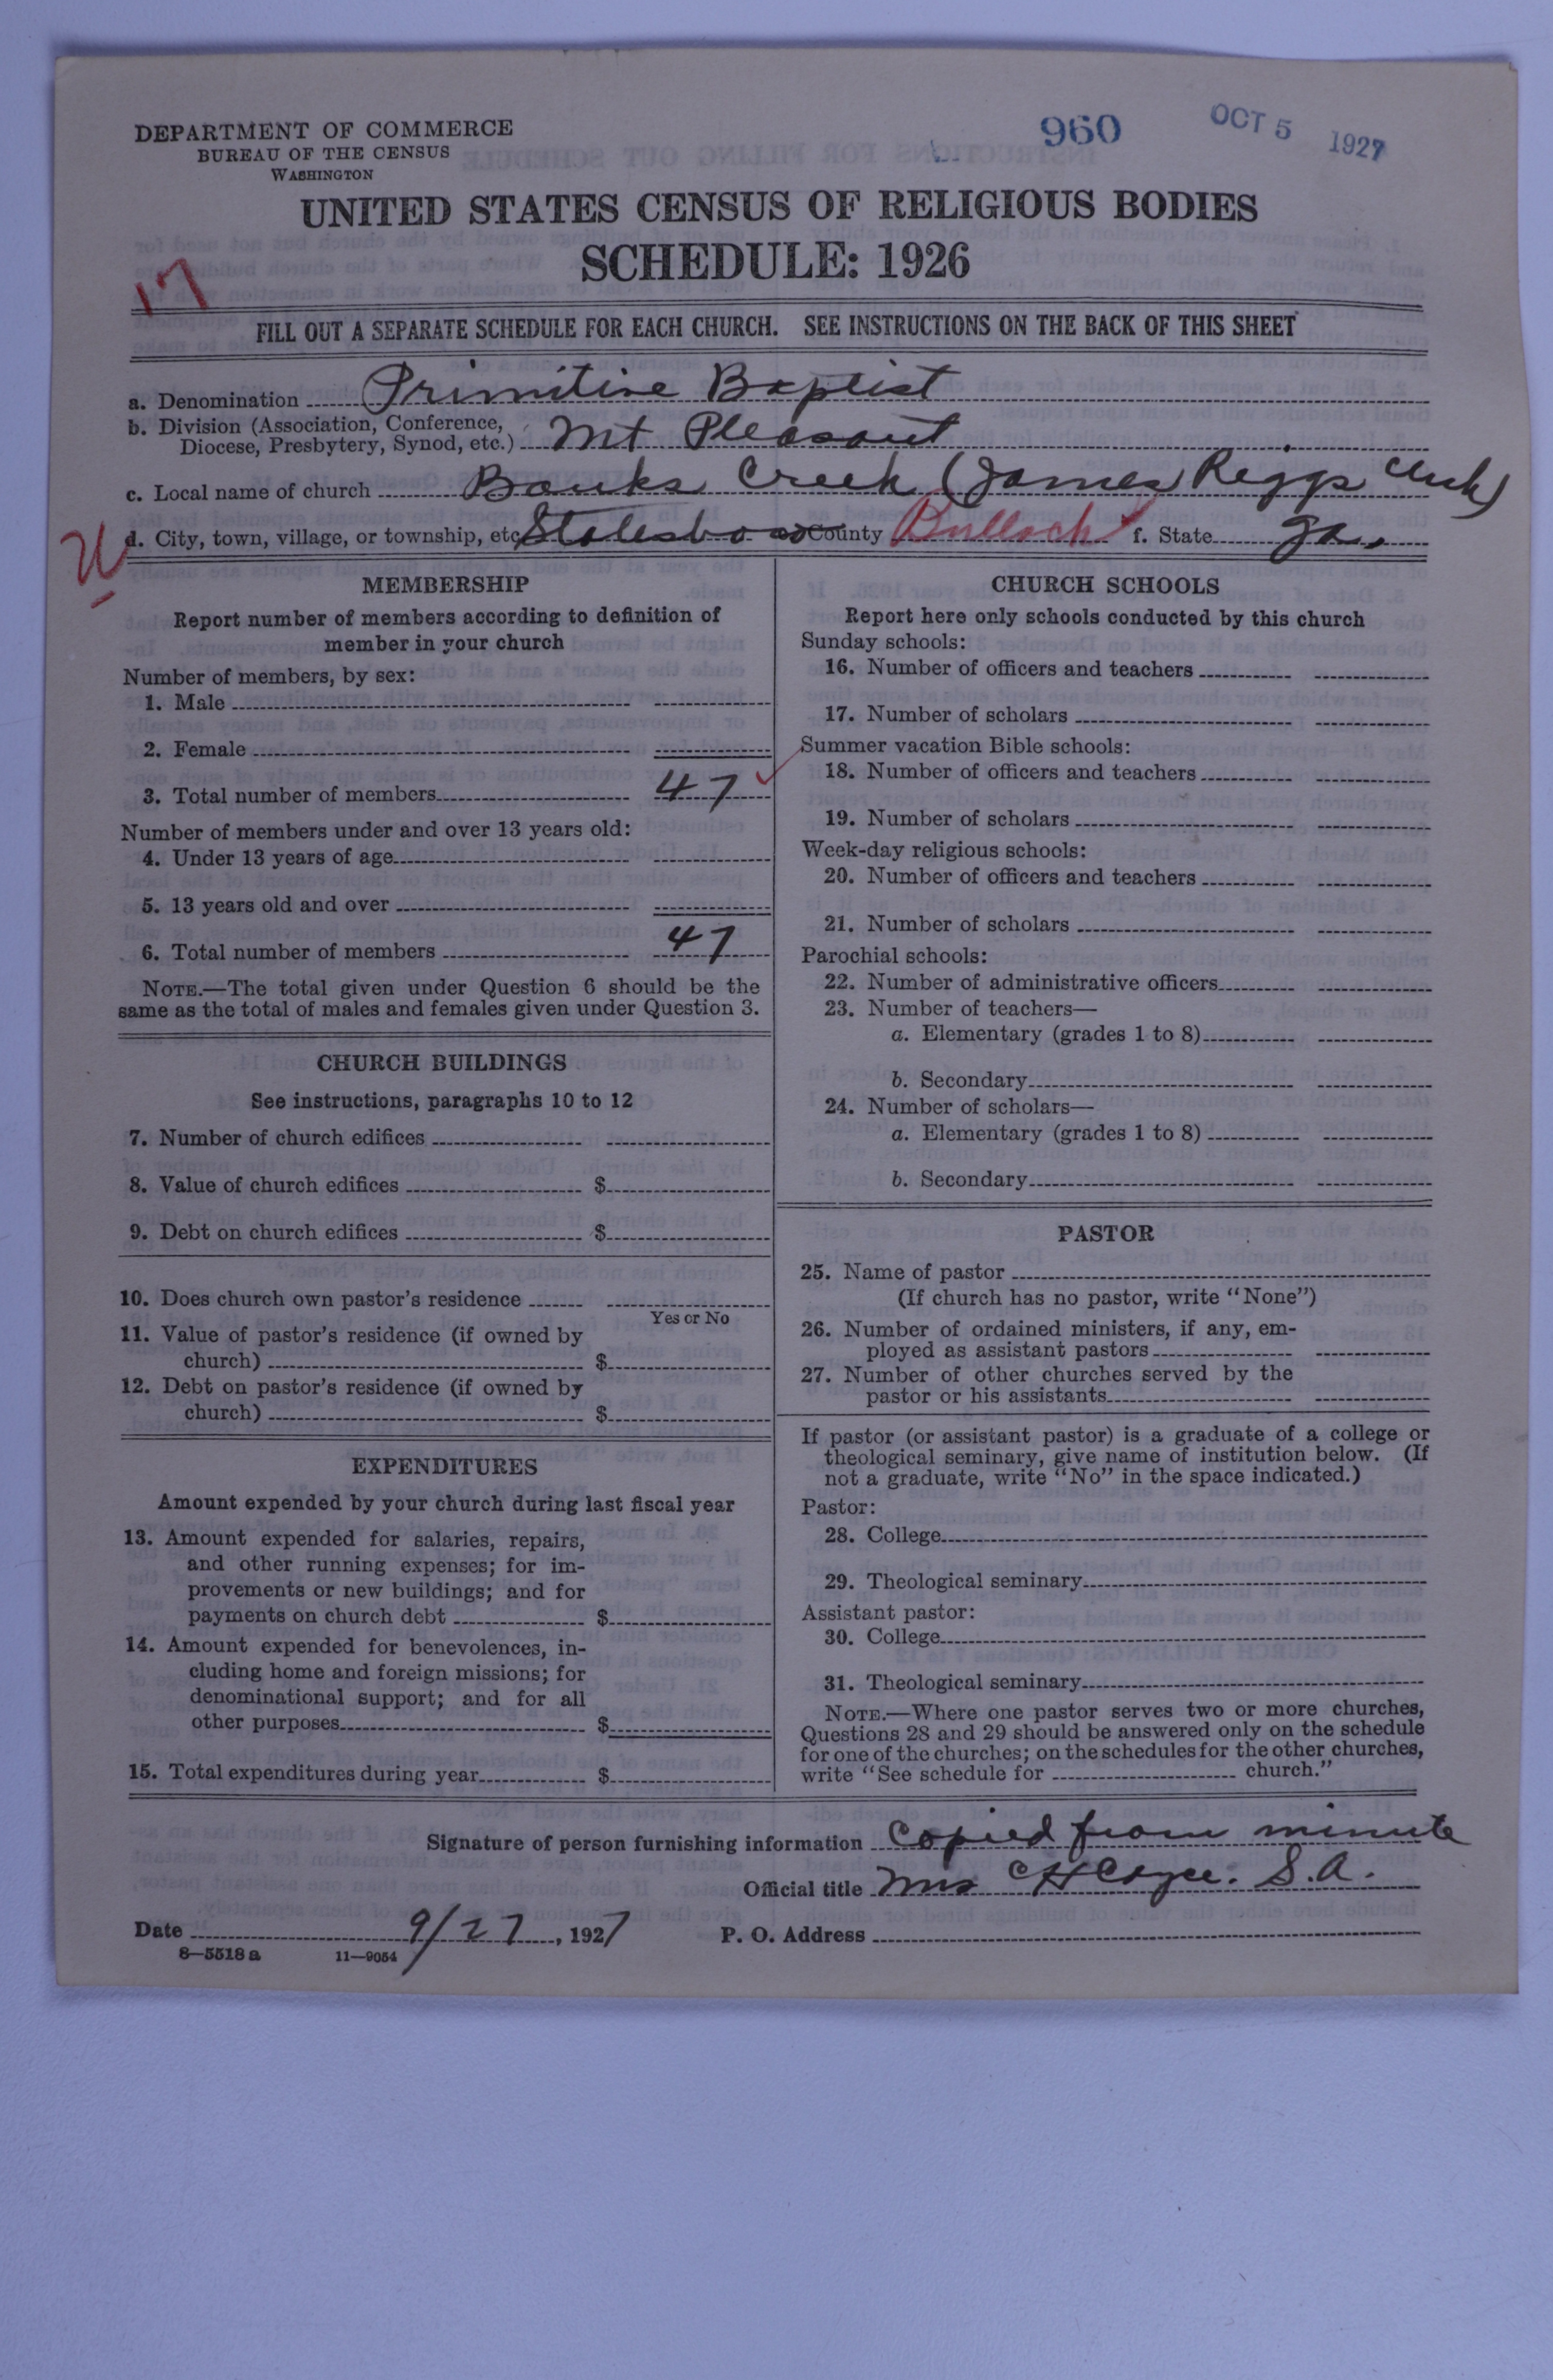 DEPARTMENT OF COMMERCE
BUREAU OF THE CENSUS
WASHINGTON
960
OCT 5 1927
UNITED STATES CENSUS OF RELIGIOUS BODIES
SCHEDULE: 1926
17
FILL OUT A SEPARATE SCHEDULE FOR EACH CHURCH. SEE INSTRUCTIONS ON THE BACK OF THIS SHEET
a. Denomination Primitive Baptist
b. Division (Association, Conference,
Diocese, Presbytery, Synod, etc.) Mt Pleasant
c. Local name of church Banks Creek (James Riggs Clerk)
d. City, town, village, or township, etc. Statesboro County Bulloch f. State Ga.
MEMBERSHIP
Report number of members according to definition of
member in your church
Number of members, by sex:
1. Male
2. Female
3. Total number of members 47
Number of members under and over 13 years old:
4. Under 13 years of age
5. 13 years old and over
6. Total number of members 47
NOTE.—The total given under Question 6 should be the
same as the total of males and females given under Question 3.
CHURCH BUILDINGS
See instructions, paragraphs 10 to 12
7. Number of church edifices
8. Value of church edifices $
9. Debt on church edifices $
10. Does church own pastor's residence
Yes or No
11. Value of pastor's residence (if owned by
church) $
12. Debt on pastor's residence (if owned by
church) $
EXPENDITURES
Amount expended by your church during last fiscal year
13. Amount expended for salaries, repairs,
and other running expenses; for im-
provements or new buildings; and for
payments on church debt $
14. Amount expended for benevolences, in-
cluding home and foreign missions; for
denominational support; and for all
other purposes $
15. Total expenditures during year $
CHURCH SCHOOLS
Report here only schools conducted by this church
Sunday schools:
16. Number of officers and teachers
17. Number of scholars
Summer vacation Bible schools:
18. Number of officers and teachers
19. Number of scholars
Week-day religious schools:
20. Number of officers and teachers
21. Number of scholars
Parochial schools:
22. Number of administrative officers
23. Number of teachers—
a. Elementary (grades 1 to 8)
b. Secondary
24. Number of scholars—
a. Elementary (grades 1 to 8)
b. Secondary
PASTOR
25. Name of pastor
(If church has no pastor, write "None")
26. Number of ordained ministers, if any, em-
ployed as assistant pastors
27. Number of other churches served by the
pastor or his assistants
If pastor (or assistant pastor) is a graduate of a college or
theological seminary, give name of institution below. (If
not a graduate, write "No" in the space indicated.)
Pastor:
28. College
29. Theological seminary
Assistant pastor:
30. College
31. Theological seminary
NOTE.—Where one pastor serves two or more churches,
Questions 28 and 29 should be answered only on the schedule
for one of the churches; on the schedules for the other churches,
write "See schedule for church."
Signature of person furnishing information Copied from minute
Official title Mrs C H Cayce. S.A.
Date 9/27, 1927 P. O. Address
8—5518 a 11—9054